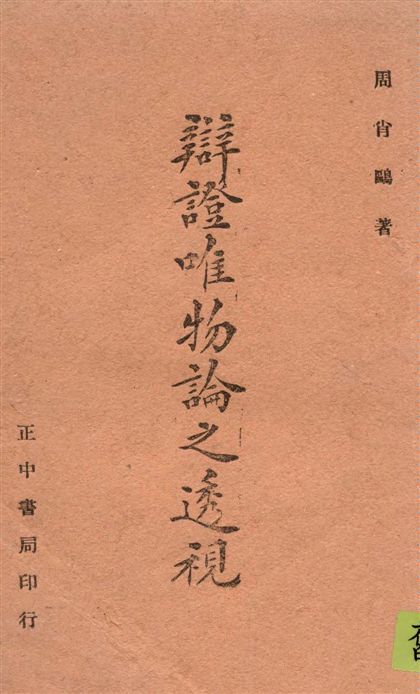 周肖鷗著
辯證唯物論之透視
正中書局印行